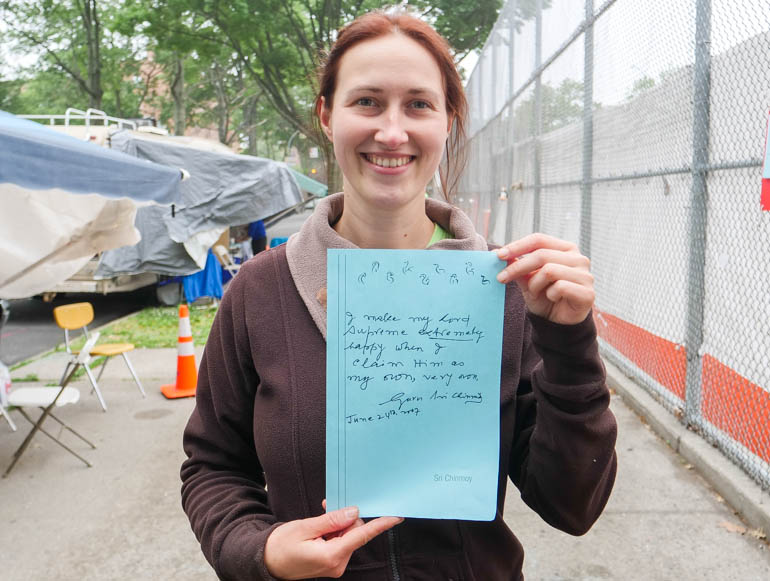 I make my Lord
Supreme extremely
happy when I
claim Him as
my own, very own.
Sri Chinmoy
June 24th
Sri Chinmoy